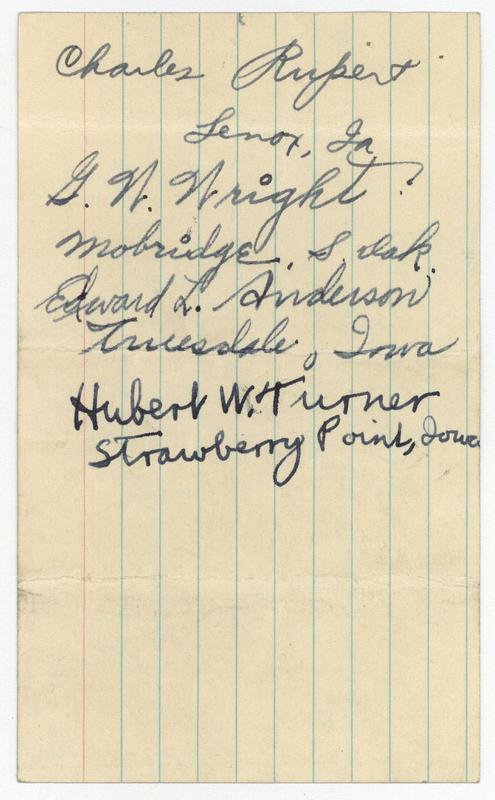 Charles Rupert
Lenox, Ia
G. W. Wright
Mobridge, S. Dak.
Edward L. Anderson
Truesdale, Iowa
Hubert W. Turner
Strawberry Point, Iowa